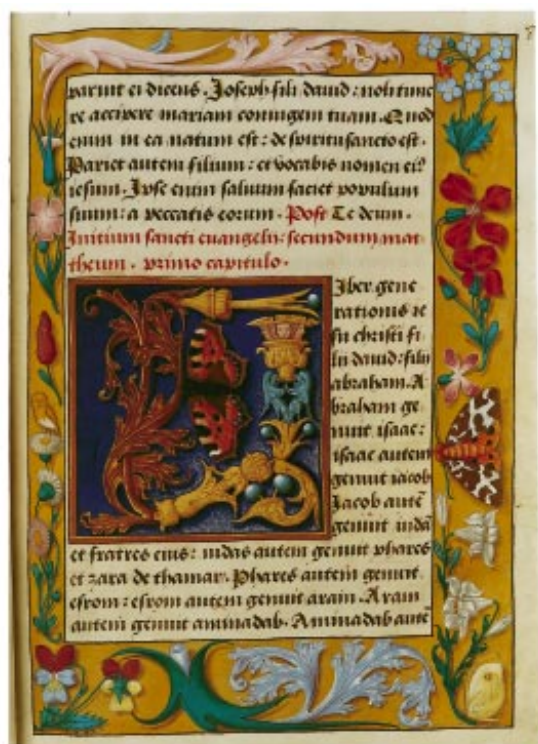 paruit ei dicens. Joseph fili dauid: noli time
re accipere mariam coniugem tuam. Quod
enim in ea natum est: de spiritusancto est.
Pariet autem filium: et vocabis nomen eiꝰ
iesum. Ipse enim saluum faciet populum
suum: a peccatis eorum. Post Te deum.
Initium sancti euangelii: secundum mat
theum. primo capitulo.
Liber gene
rationis ie
su christi fi
lii dauid: filii
abraham. A
braham ge
nuit isaac:
isaac autem
genuit iacob
Jacob autē
genuit iudā
et fratres eius: iudas autem genuit phares
et zara de thamar. Phares autem genuit
esrom: esrom autem genuit aram. Aram
autem genuit aminadab. Aminadab autē